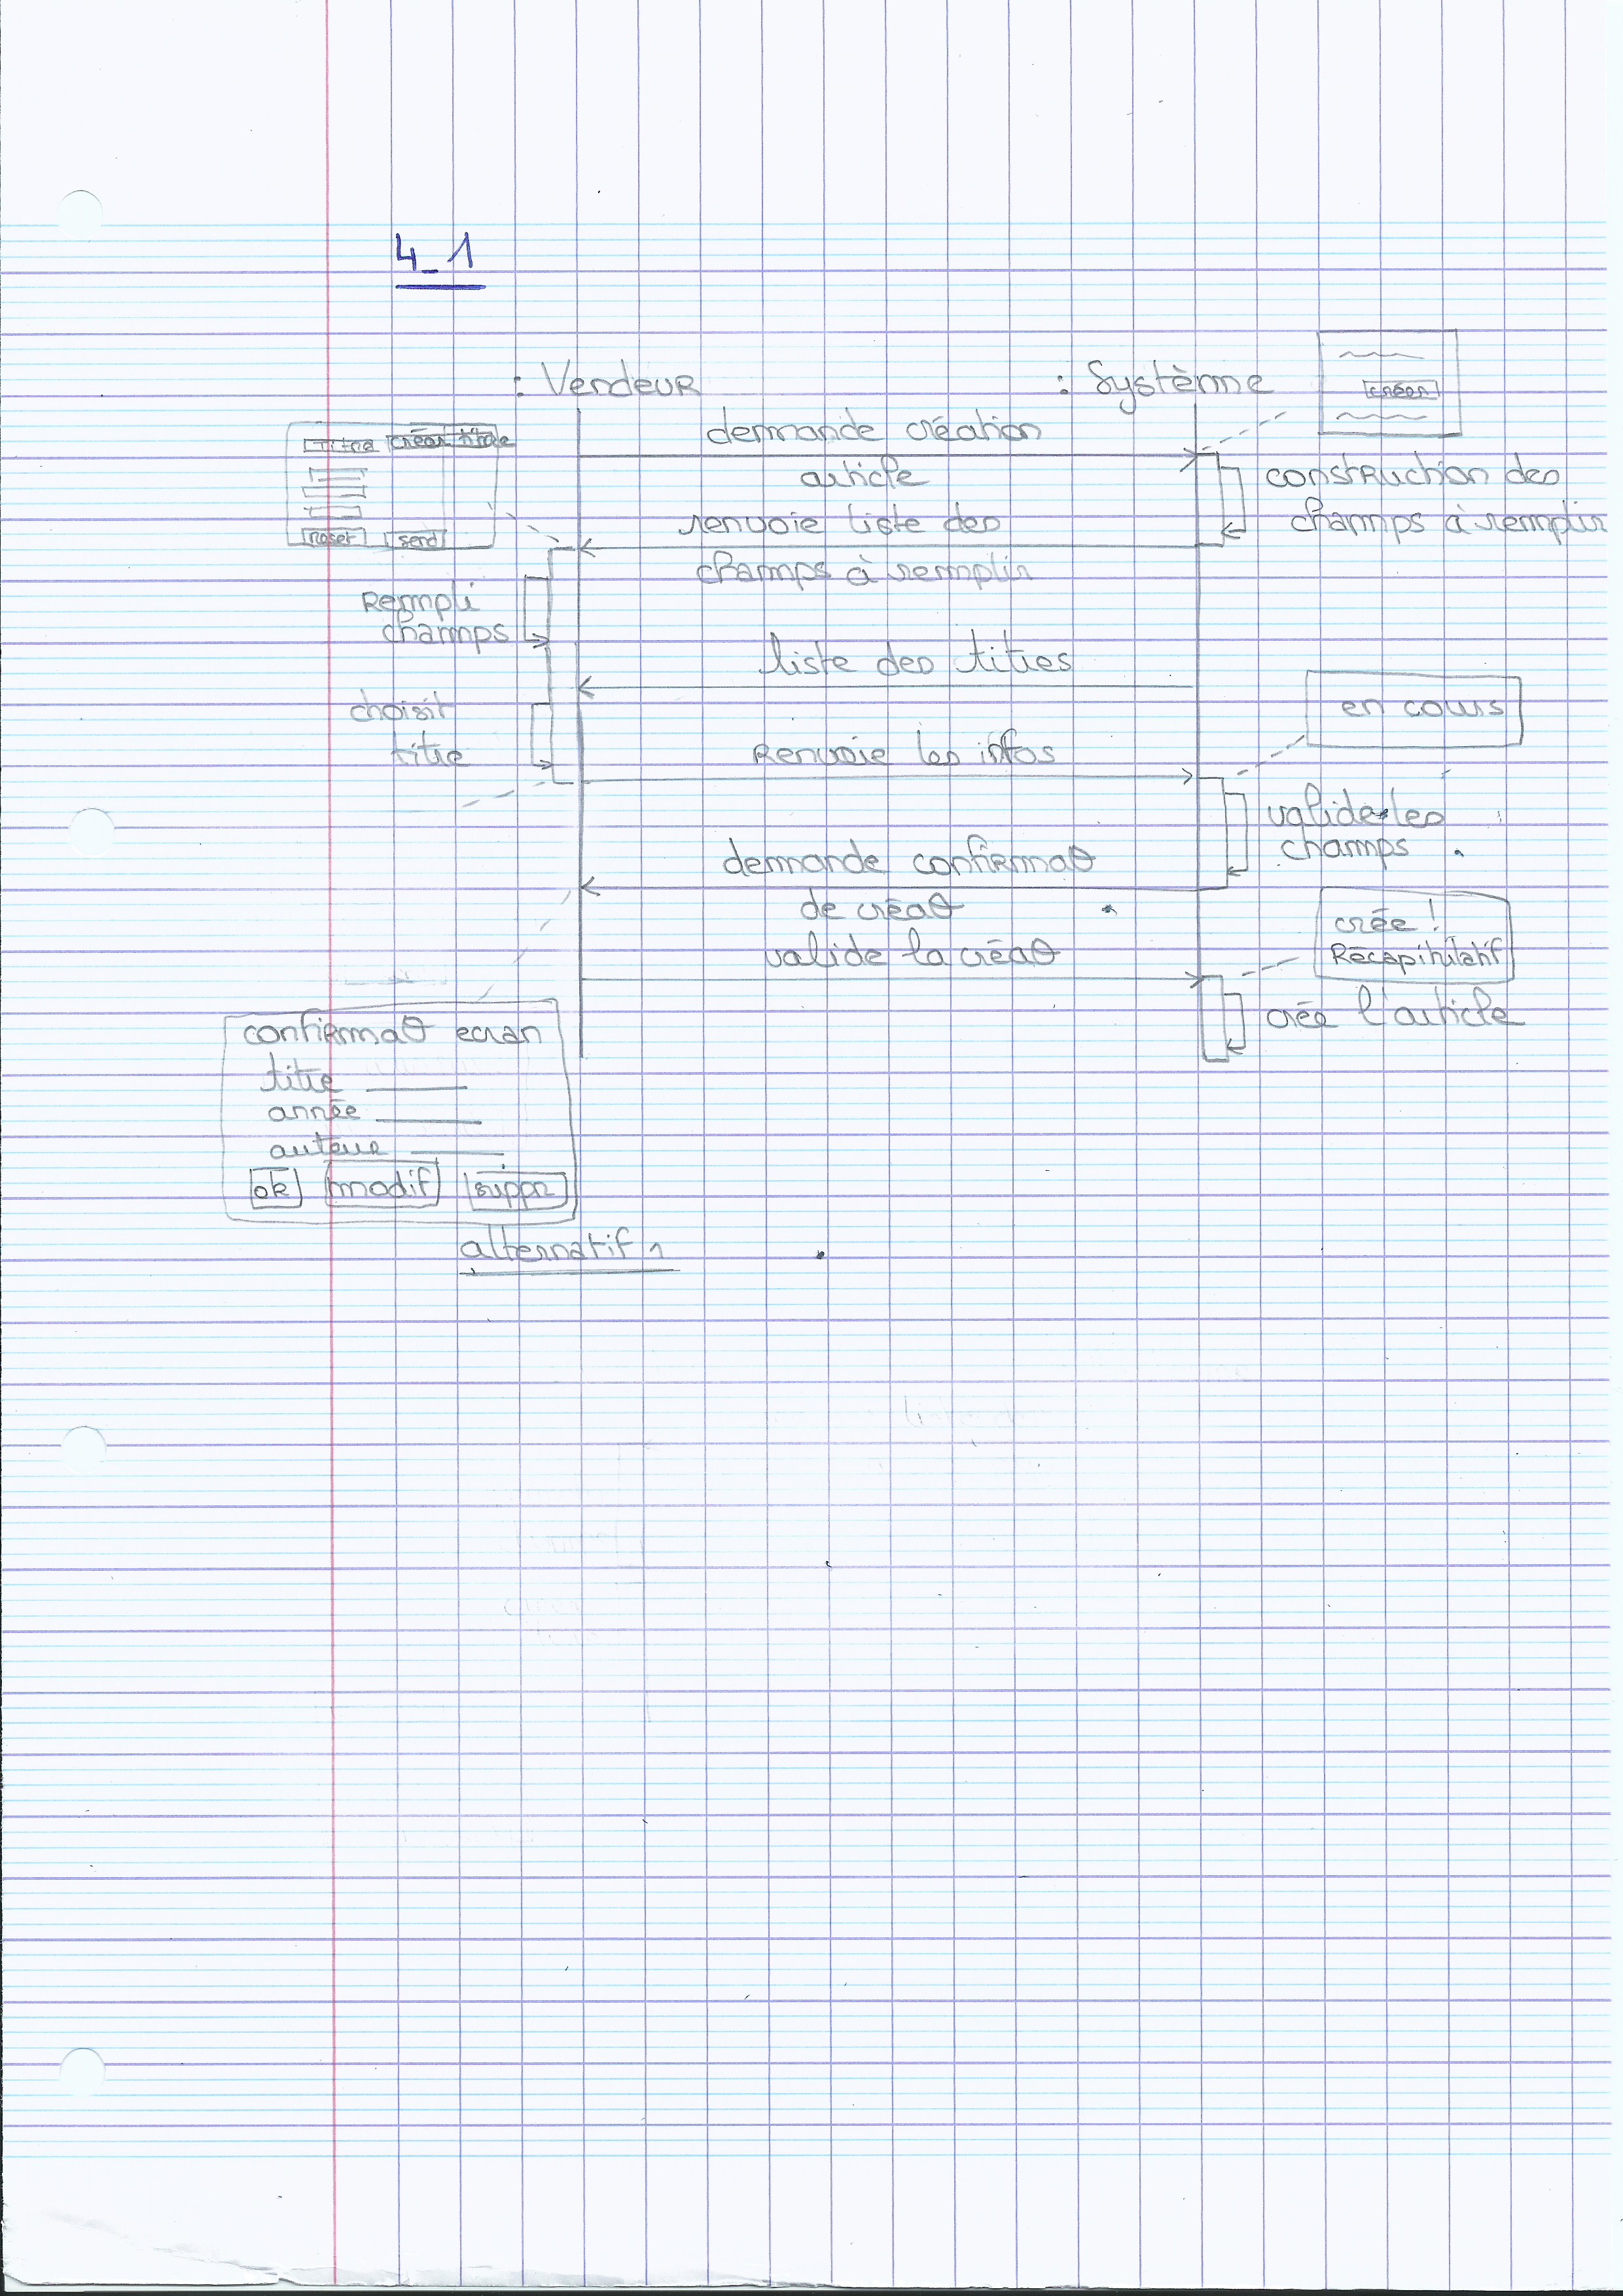 4_1
: Vendeur
: Système
créer
titre créer titre
demande création
article
construction des
champs à remplir
renvoie liste des
champs à remplir
reset send
Rempli
champs
liste des titres
choisit
titre
en cours
Renvoie les infos
valide les
champs
demande confirmaθ
de créaθ
crée !
Récapitulatif
valide la créaθ
crée l'article
confirmaθ ecran
titre
année
auteur
ok modif suppr
alternatif 1